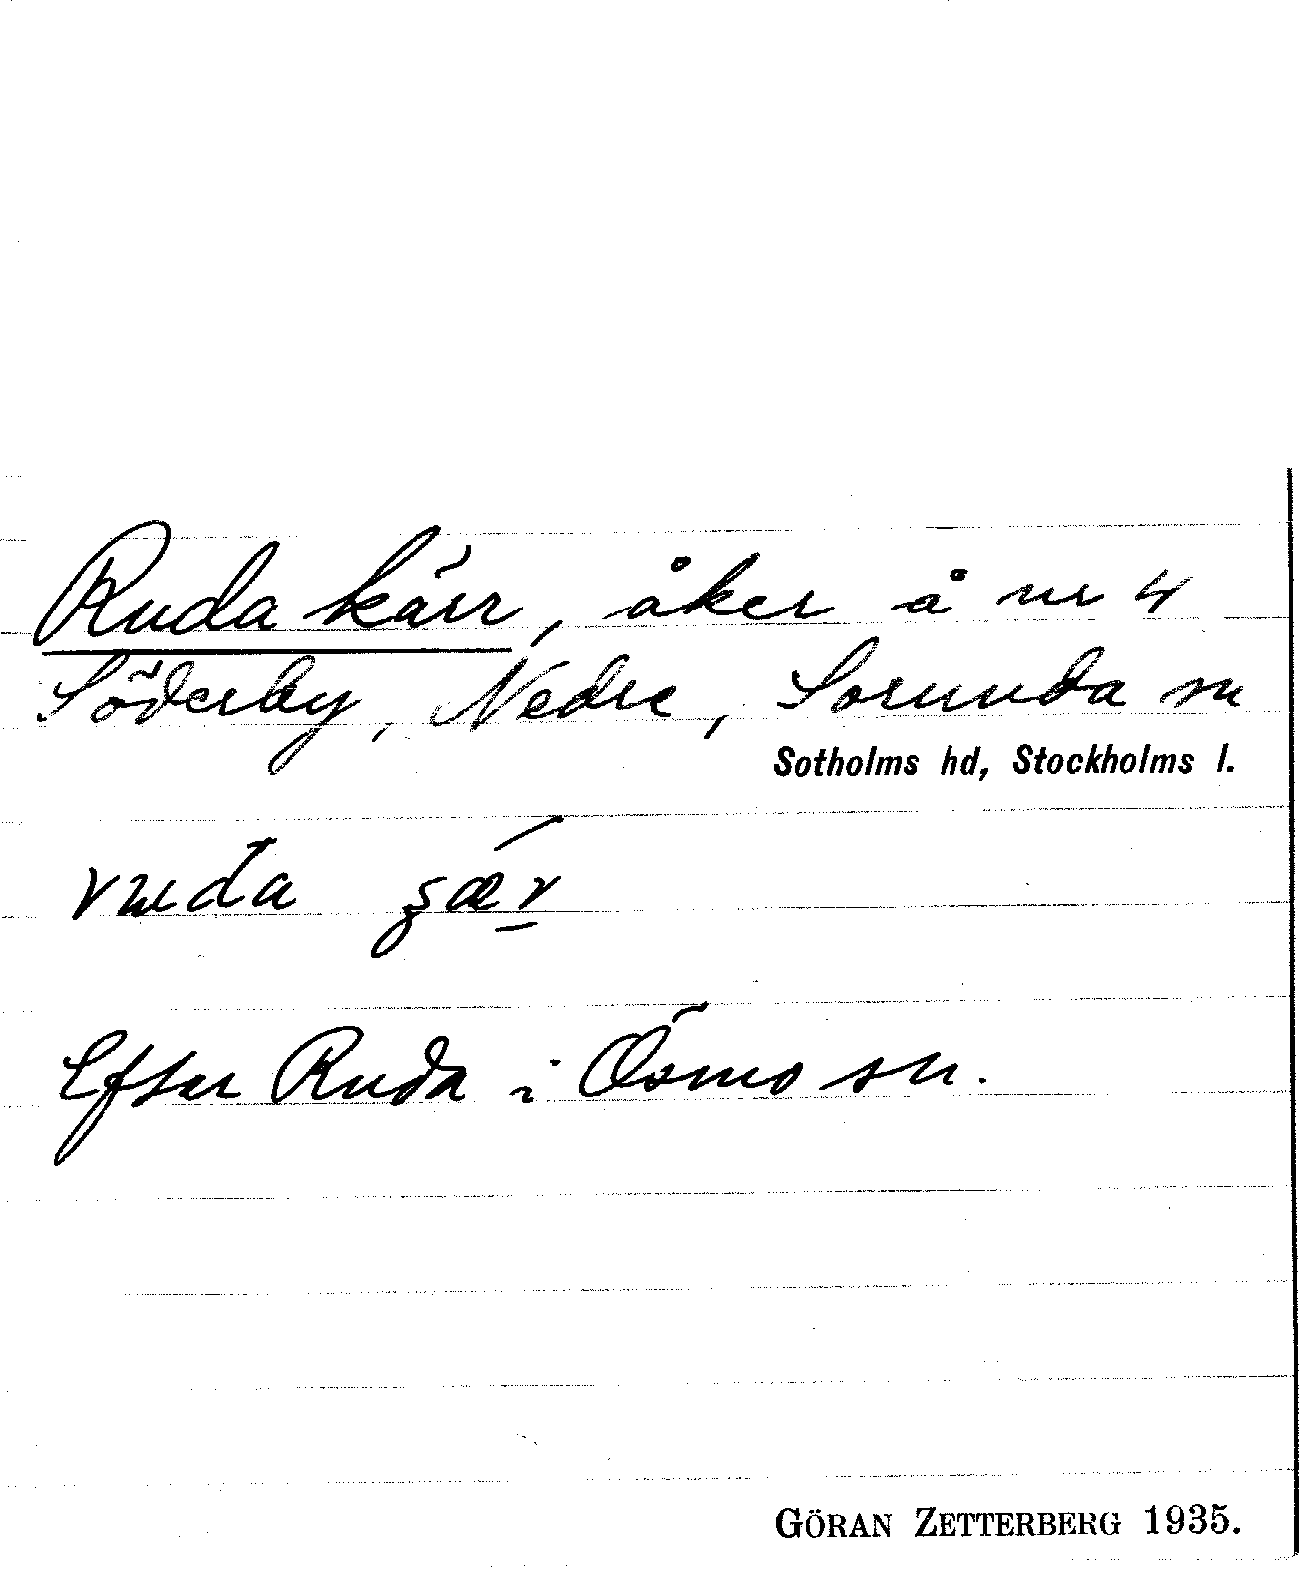 Ruda kärr, åker å nr 4
Söderby, Nedre, Sorunda sn
Sotholms hd, Stockholms l.
Efter Ruda i Ösmo sn.
GÖRAN ZETTERBERG 1935.